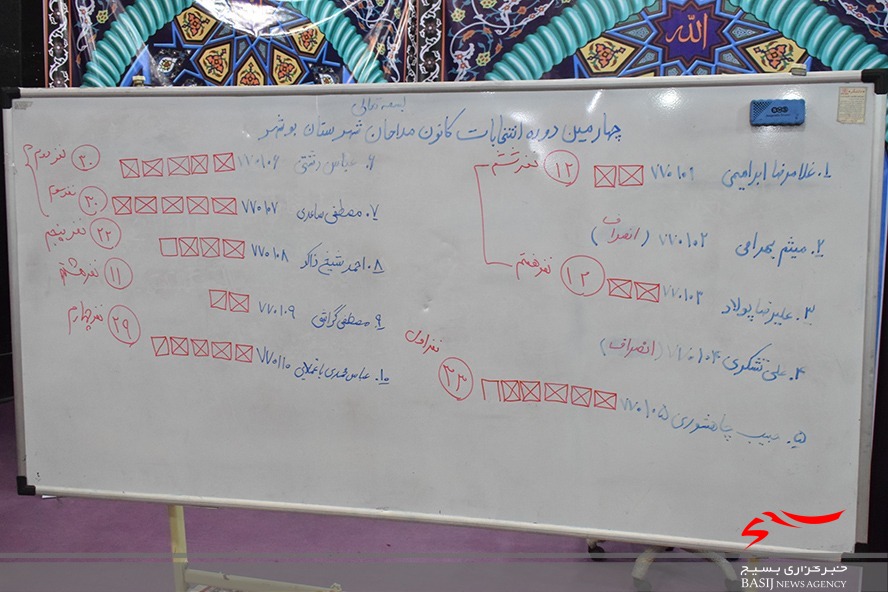 الله
بسمه تعالی
چهارمین دوره انتخابات کانون مداحان شهرستان بوشهر
۱. غلامرضا ابراهیمی ۷۷۰۱۰۱ ۱۲ نفر ششم
۲. میثم بهرامی ۷۷۰۱۰۲ (انصراف)
۳. علیرضا پولاد ۷۷۰۱۰۳ ۱۲ نفر هفتم
۴. علی تشکری ۷۷۰۱۰۴ (انصراف)
۵. حبیب چاهشوری ۷۷۰۱۰۵ ۳۳ نفر اول
۶. عباس دشتی ۷۷۰۱۰۶ ۳۰ نفر دوم
۷. مصطفی ساعدی ۷۷۰۱۰۷ ۳۰ نفر سوم
۸. احمد شیخ ذاکر ۷۷۰۱۰۸ ۲۲ نفر پنجم
۹. مصطفی گراشی ۷۷۰۱۰۹ ۱۱ نفر هشتم
۱۰. عباس محمدی باغملایی ۷۷۰۱۱۰ ۲۹ نفر چهارم
خبرگزاری بسیج
BASIJ NEWS AGENCY